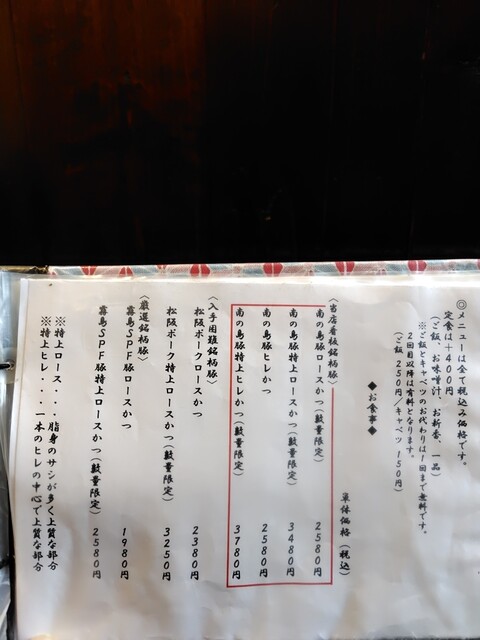 ◎メニューは全て税込み価格です。
定食は+400円
(ご飯、お味噌汁、お新香、一品)
※ご飯とキャベツのお代わりは1回まで無料です。
2回目以降は有料となります。
(ご飯 250円/キャベツ 150円)
◆お食事◆
単体価格(税込)
〈当店看板銘柄豚〉
南の島豚ロースかつ(数量限定) 2580円
南の島豚特上ロースかつ(数量限定) 3480円
南の島豚ヒレかつ 2580円
南の島豚特上ヒレかつ(数量限定) 3780円
〈入手困難銘柄豚〉
松阪ポークロースかつ 2380円
松阪ポーク特上ロースかつ(数量限定) 3250円
〈厳選銘柄豚〉
霧島SPF豚ロースかつ 1980円
霧島SPF豚特上ロースかつ(数量限定) 2580円
※特上ロース・・・脂身のサシが多く上質な部分
※特上ヒレ・・・一本のヒレの中心で上質な部分